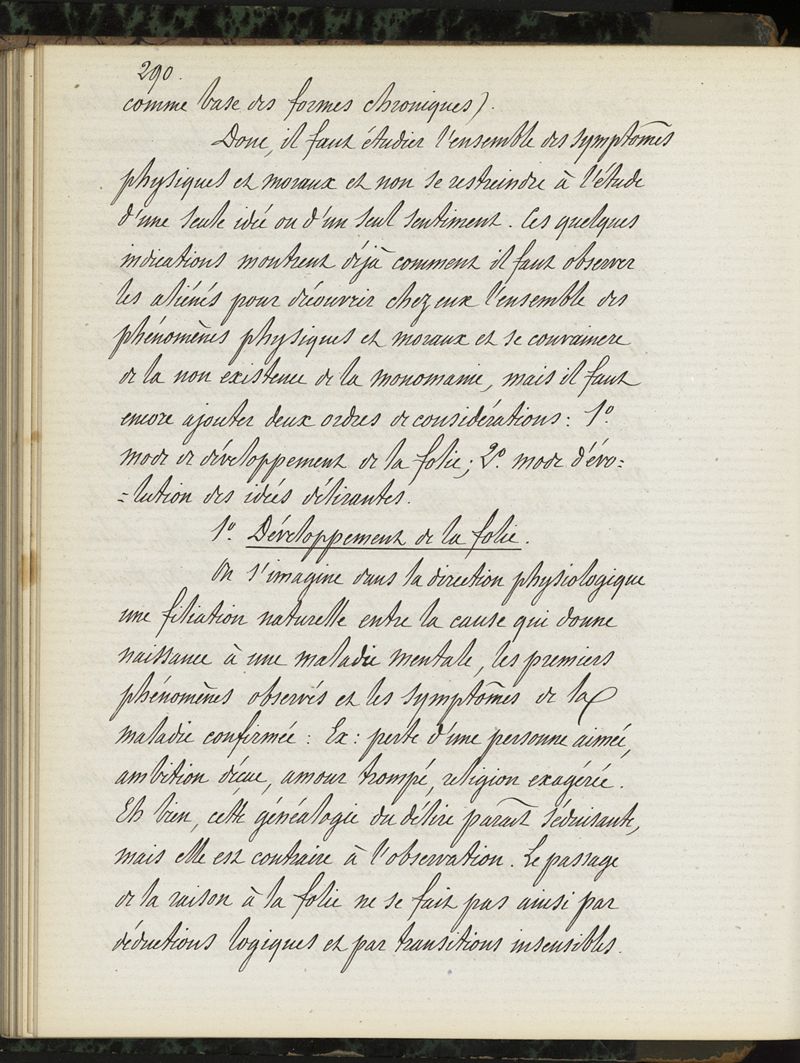 290.
comme base des formes chroniques).
Donc, il faut étudier l'ensemble des symptômes
physiques et moraux et non se restreindre à l'étude
d'une seule idée ou d'un seul sentiment. Ces quelques
indications montrent déjà comment il faut observer
les aliénés pour découvrir chez eux l'ensemble des
phénomènes physiques et moraux et se convaincre
de la non existence de la monomanie, mais il faut
encore ajouter deux ordres de considérations: 1º.
mode de développement de la folie; 2º. mode d'évo=
=lution des idées délirantes.
1º. Développement de la folie.
On s'imagine dans la direction physiologique
une filiation naturelle entre la cause qui donne
naissance à une maladie mentale, les premiers
phénomènes observés et les symptômes de la
maladie confirmée: Ex: perte d'une personne aimée,
ambition déçue, amour trompé, religion exagérée.
Eh bien, cette généalogie du délire paraît séduisante,
mais elle est contraire à l'observation. Le passage
de la raison à la folie ne se fait pas ainsi par
déductions logiques et par transitions insensibles.